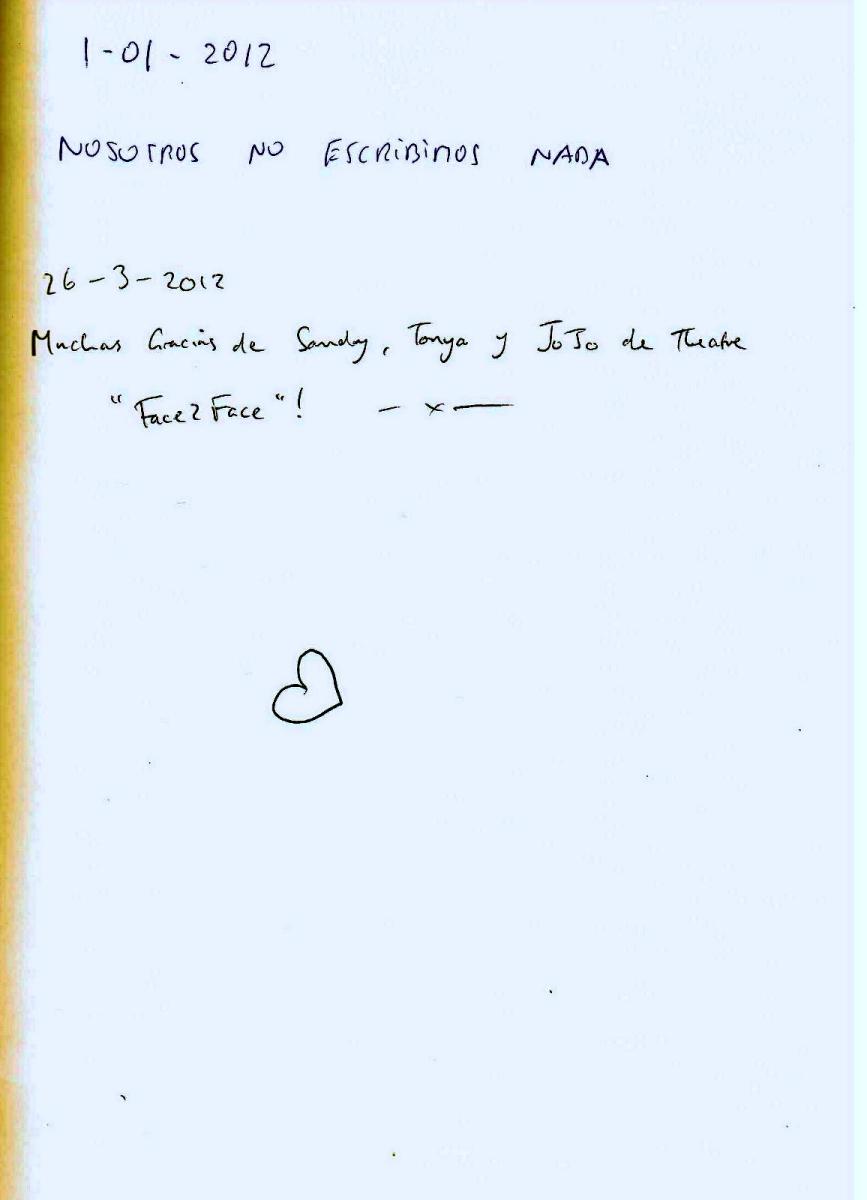 1-01-2012
NOSOTROS NO ESCRIBIMOS NADA
26-3-2012
Muchas Gracias de Sandy, Tonya y JoJo de Theatre
"Face2Face"! - x -